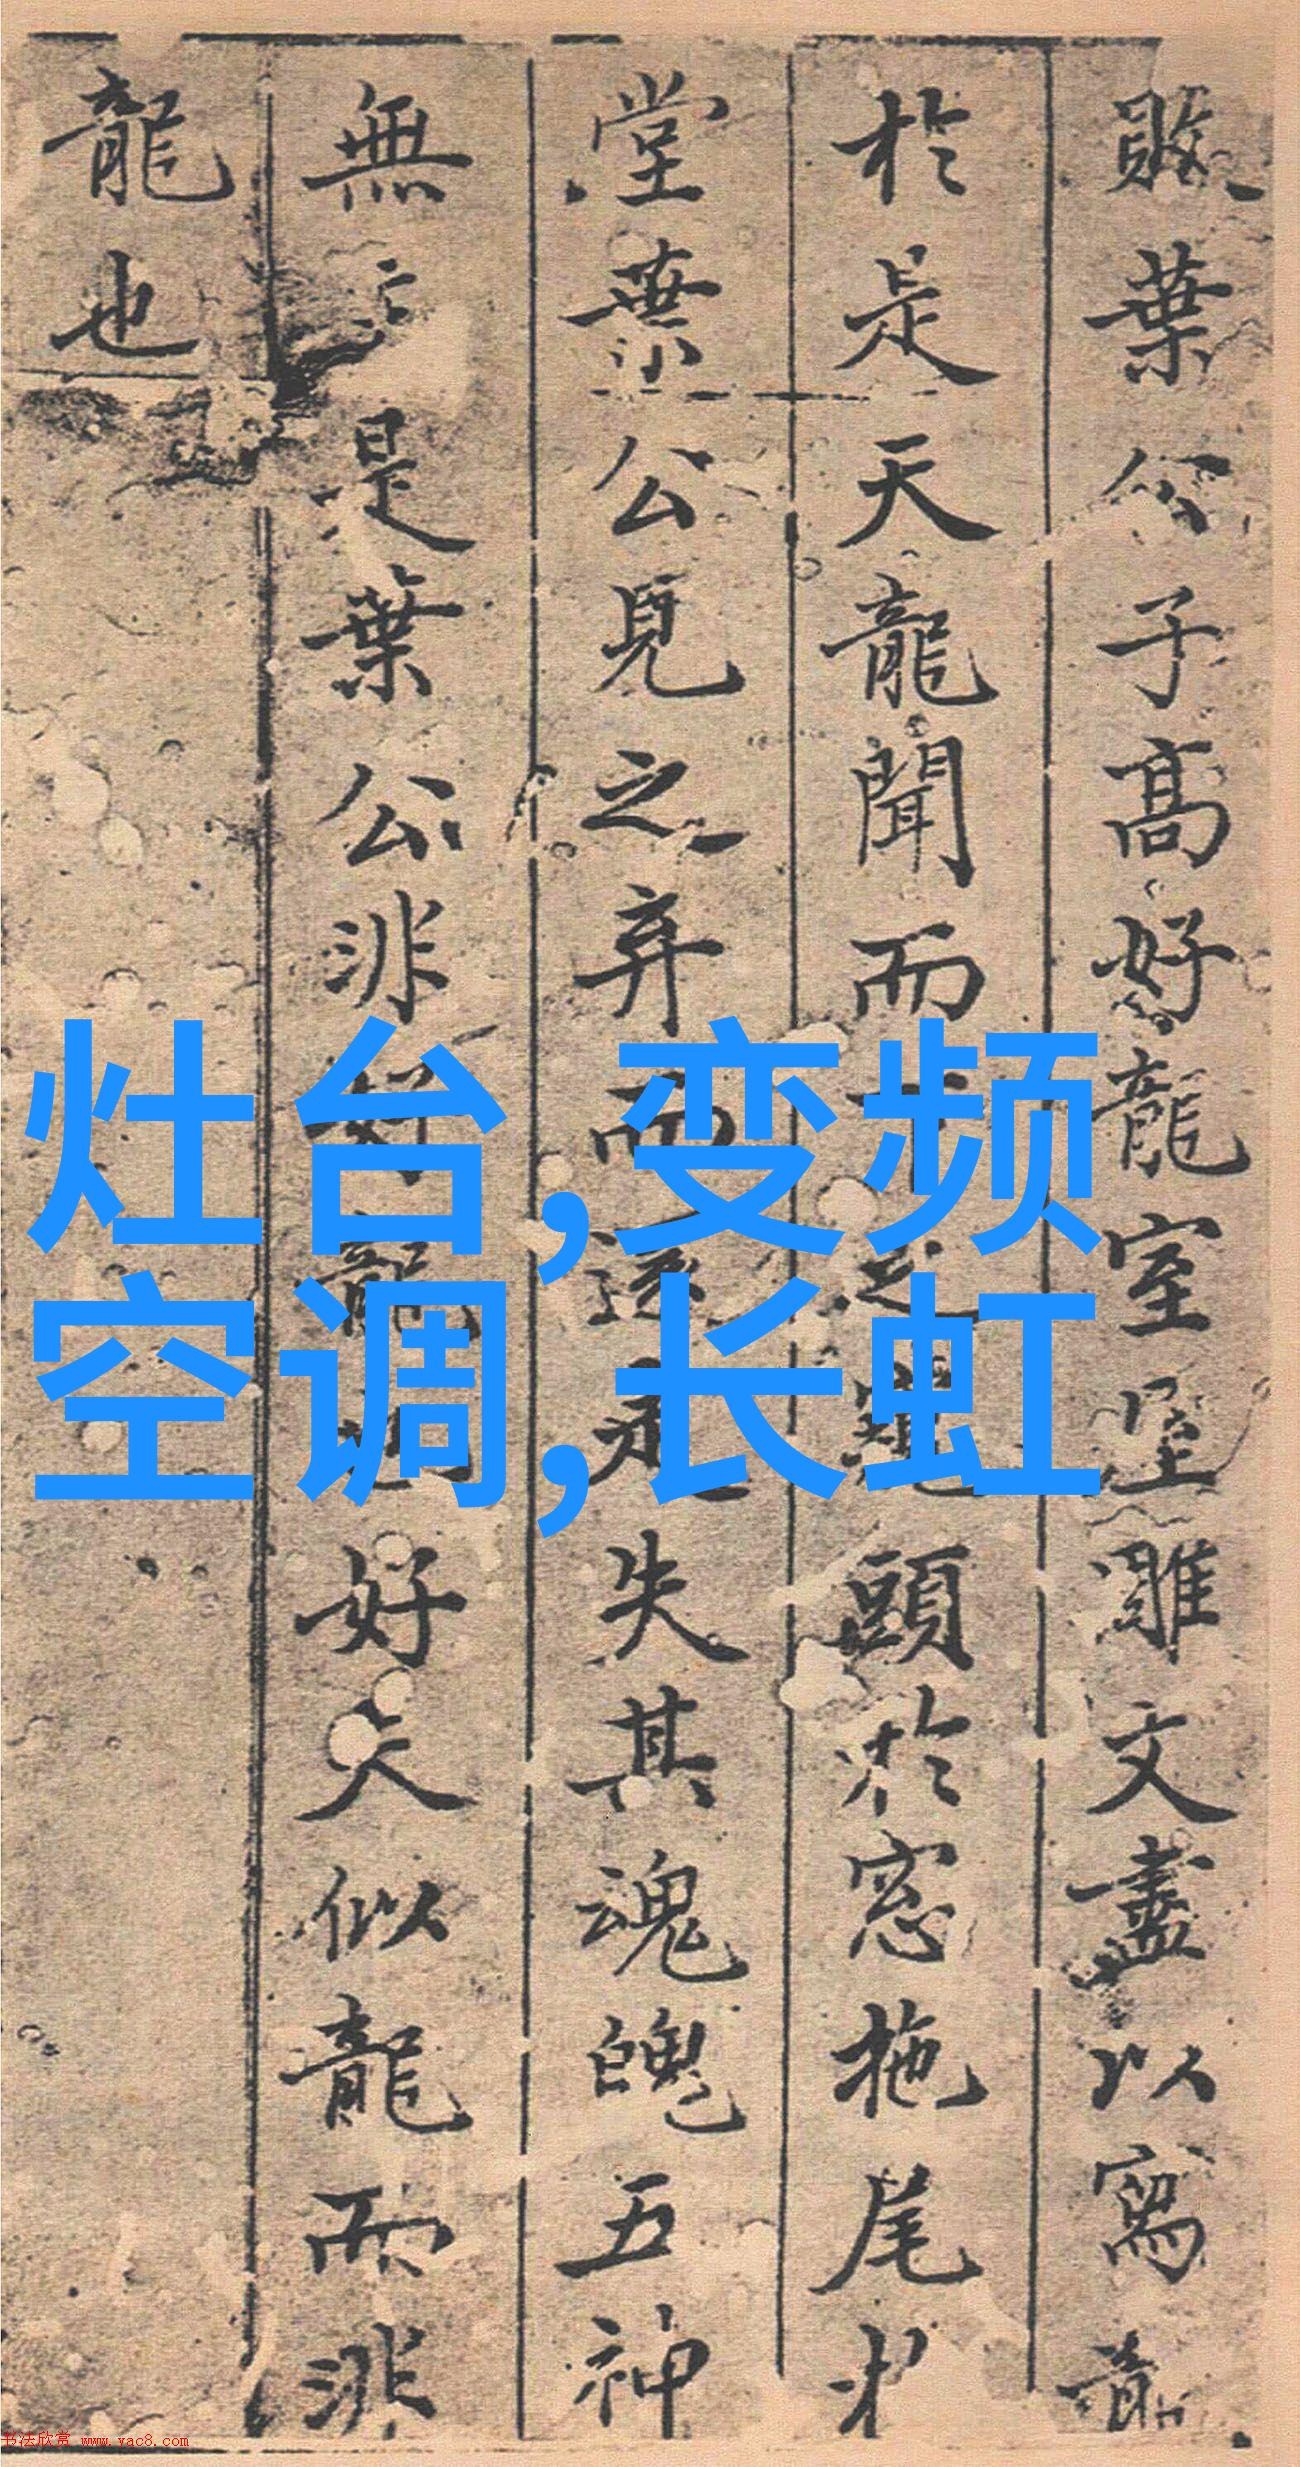 敗葉公子高好龍室屋雕文盡以寫龍
於是天龍聞而下之窺頭於窓拖尾於
堂葉公見之弃而還走失其魂魄五神
無主是葉公非好龍也好夫似龍而非
龍也
灶台,变频
空调,长虹
书法欣赏 www.yac8.com